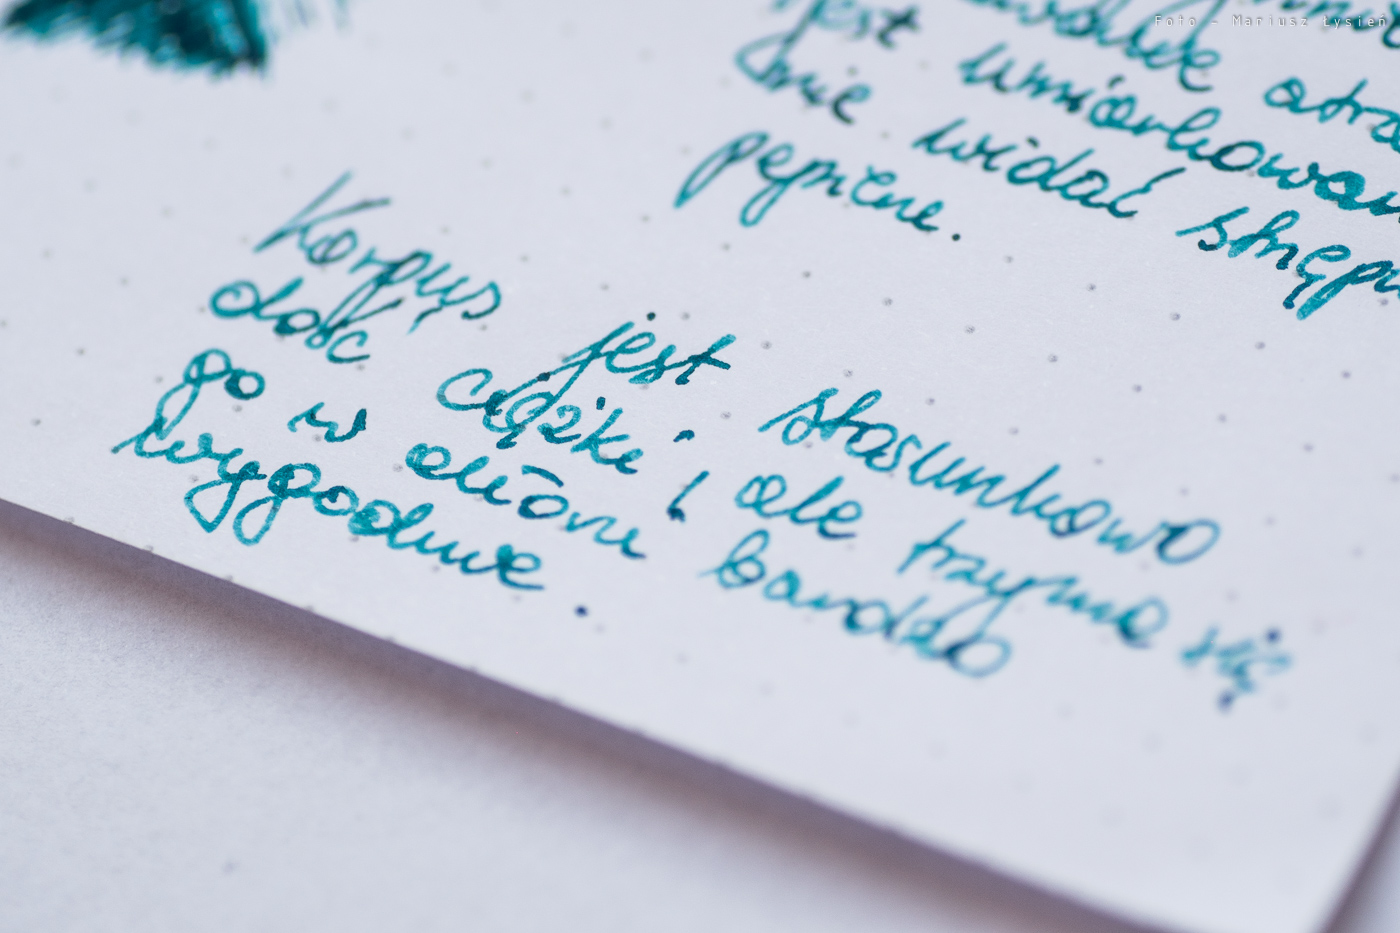 Foto - Mariusz Łysień
jest umiarkowan
nie widać strzęp
pępiene.
Korpus jest stosunkowo
dość ciężki, ale trzyma się
go w dłoni bardzo
wygodnie.